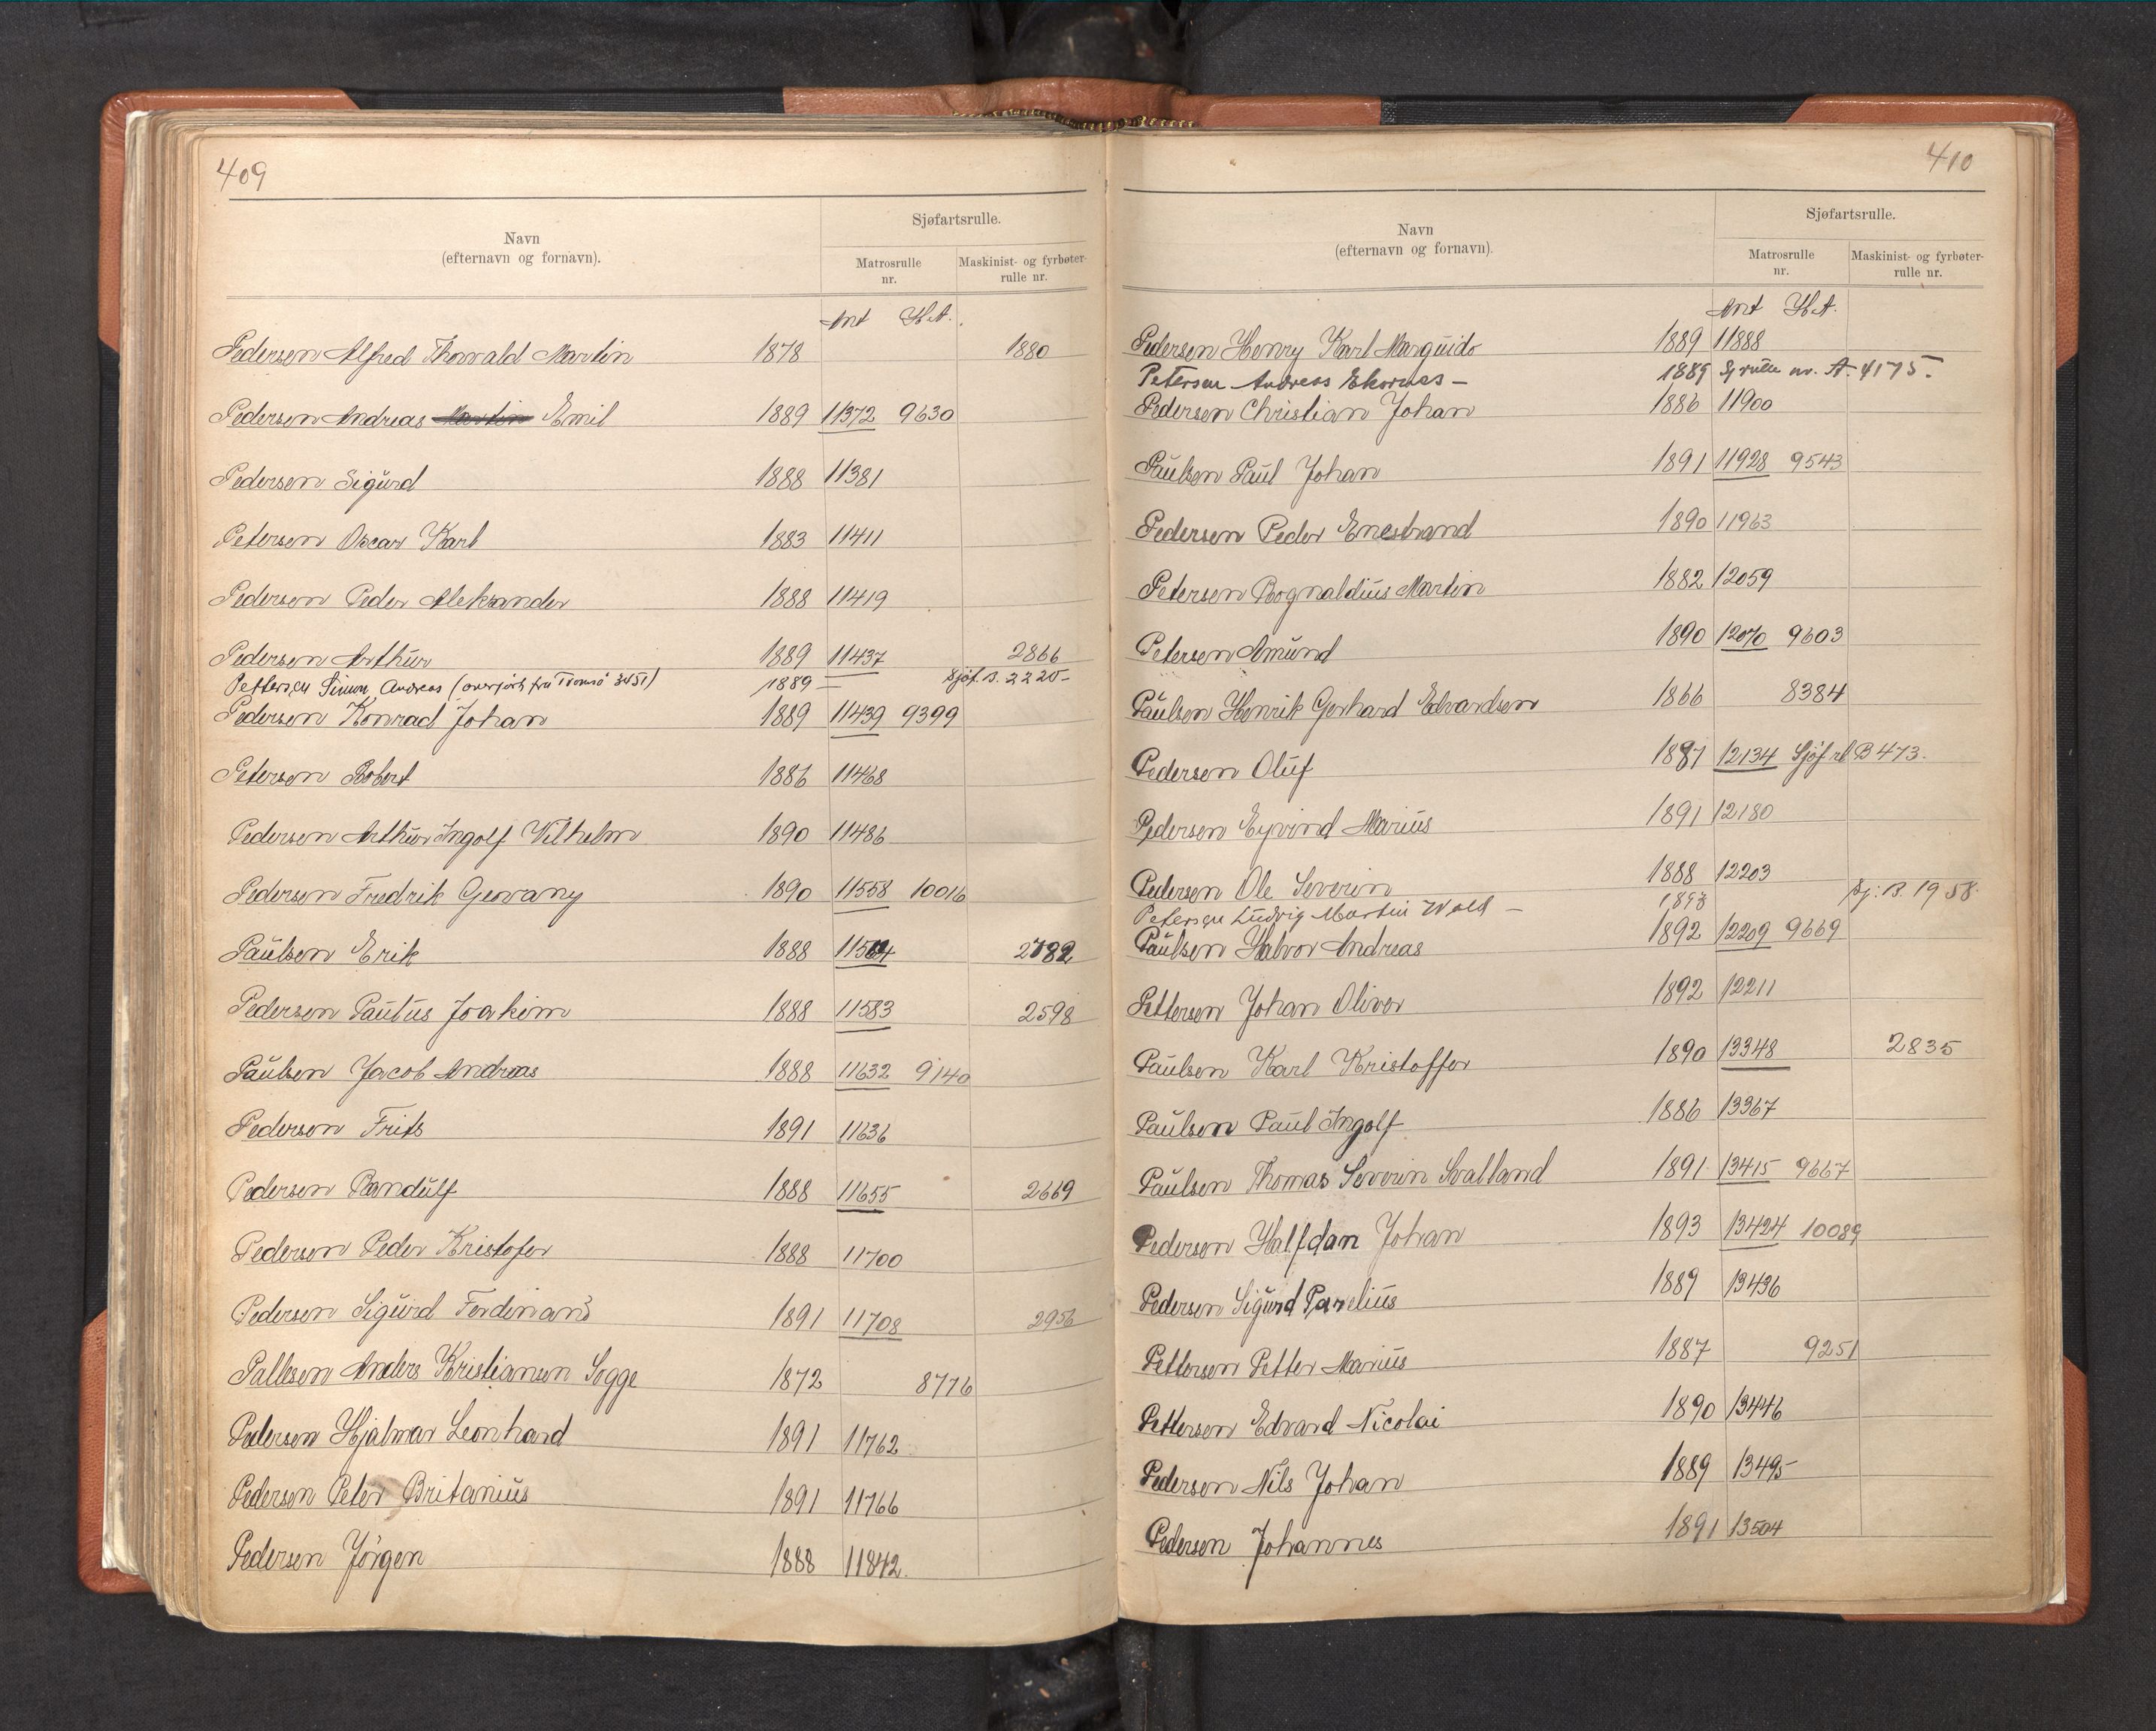 409
Navn
(efternavn og fornavn).
Sjøfartsrulle.
Matrosrulle
nr.
Maskinist- og fyrbøter-
rulle nr.
Ant H.A.
Pedersen Alfred Thorvald Martin 1878 1880
Pedersen Andreas Martin Emil 1889 11372 9630
Pedersen Sigurd 1888 11381
Petersen Oscar Karl 1883 11411
Pedersen Peder Aleksander 1888 11419
Pedersen Arthur 1889 11437 2866
Pettersen Simon Andreas (overført fra Tromsø 3451) 1889 — Sjøf. B. 2220-
Pedersen Konrad Johan 1889 11439 9399
Petersen Robert 1886 11468
Pedersen Arthur Ingolf Vilhelm 1890 11486
Pedersen Fredrik Geovany 1890 11558 10016
Paulsen Erik 1888 11564 2782
Pedersen Paulus Joakim 1888 11583 2598
Paulsen Jacob Andreas 1888 11632 9140
Pedersen Frits 1891 11636
Pedersen Randulf 1888 11655 2669
Pedersen Peder Kristofer 1888 11700
Pedersen Sigurd Ferdinand 1891 11708 2956
Pallesen Anders Kristiansen Sogge 1872 8776
Pedersen Hjalmar Leonhard 1891 11762
Pedersen Peter Britanius 1891 11766
Pedersen Jörgen 1888 11842
410
Navn
(efternavn og fornavn).
Sjøfartsrulle.
Matrosrulle
nr.
Maskinist- og fyrbøter-
rulle nr.
Ant H.A.
Pedersen Henry Karl Marquido 1889 11888
Petersen Andreas Ekornes — 1889 Sj rulle nr. A. 4175.
Pedersen Christian Johan 1886 11900
Paulsen Paul Johan 1891 11928 9543
Pedersen Peder Enestrand 1890 11963
Petersen Rognaldius Martin 1882 12059
Petersen Amund 1890 12070 9603
Paulsen Henrik Gerhard Edvardsen 1866 8384
Pedersen Oluf 1887 12134 Sjøf rl B 473.
Pedersen Eyvind Marius 1891 12180
Pedersen Ole Severin 1888 12203
Petersen Ludvig Martin Wold — 1893 Sj. B. 1958.
Paulsen Halvor Andreas 1892 12209 9669
Pettersen Johan Oliver 1892 12211
Paulsen Karl Kristoffer 1890 13348 2835
Paulsen Paul Ingolf 1886 13367
Paulsen Thomas Severin Svalland 1891 13415 9667
Pedersen Halfdan Johan 1893 13424 10089
Pedersen Sigurd Parelius 1889 13436
Pettersen Petter Marius 1887 9251
Pettersen Edvard Nicolai 1890 13446
Pedersen Nils Johan 1889 13495
Pedersen Johannes 1891 13504